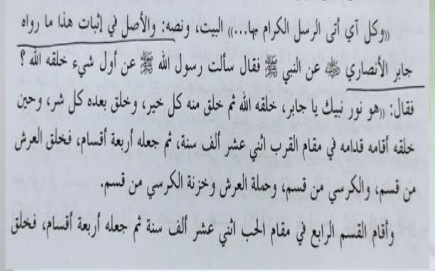 «وكل آي أتى الرسل الكرام بها...» البيت، ونصه: والأصل في إثبات هذا ما رواه
جابر الأنصاري ﷺ عن النبي ﷺ فقال سألت رسول الله ﷺ عن أول شيء خلقه الله ؟
فقال: «هو نور نبيك يا جابر، خلقه الله ثم خلق منه كل خير، وخلق بعده كل شر، وحين
خلقه أقامه قدامه في مقام القرب اثني عشر ألف سنة، ثم جعله أربعة أقسام، فخلق العرش
من قسم، والكرسي من قسم، وحملة العرش وخزنة الكرسي من قسم.
وأقام القسم الرابع في مقام الحب اثني عشر ألف سنة ثم جعله أربعة أقسام، فخلق